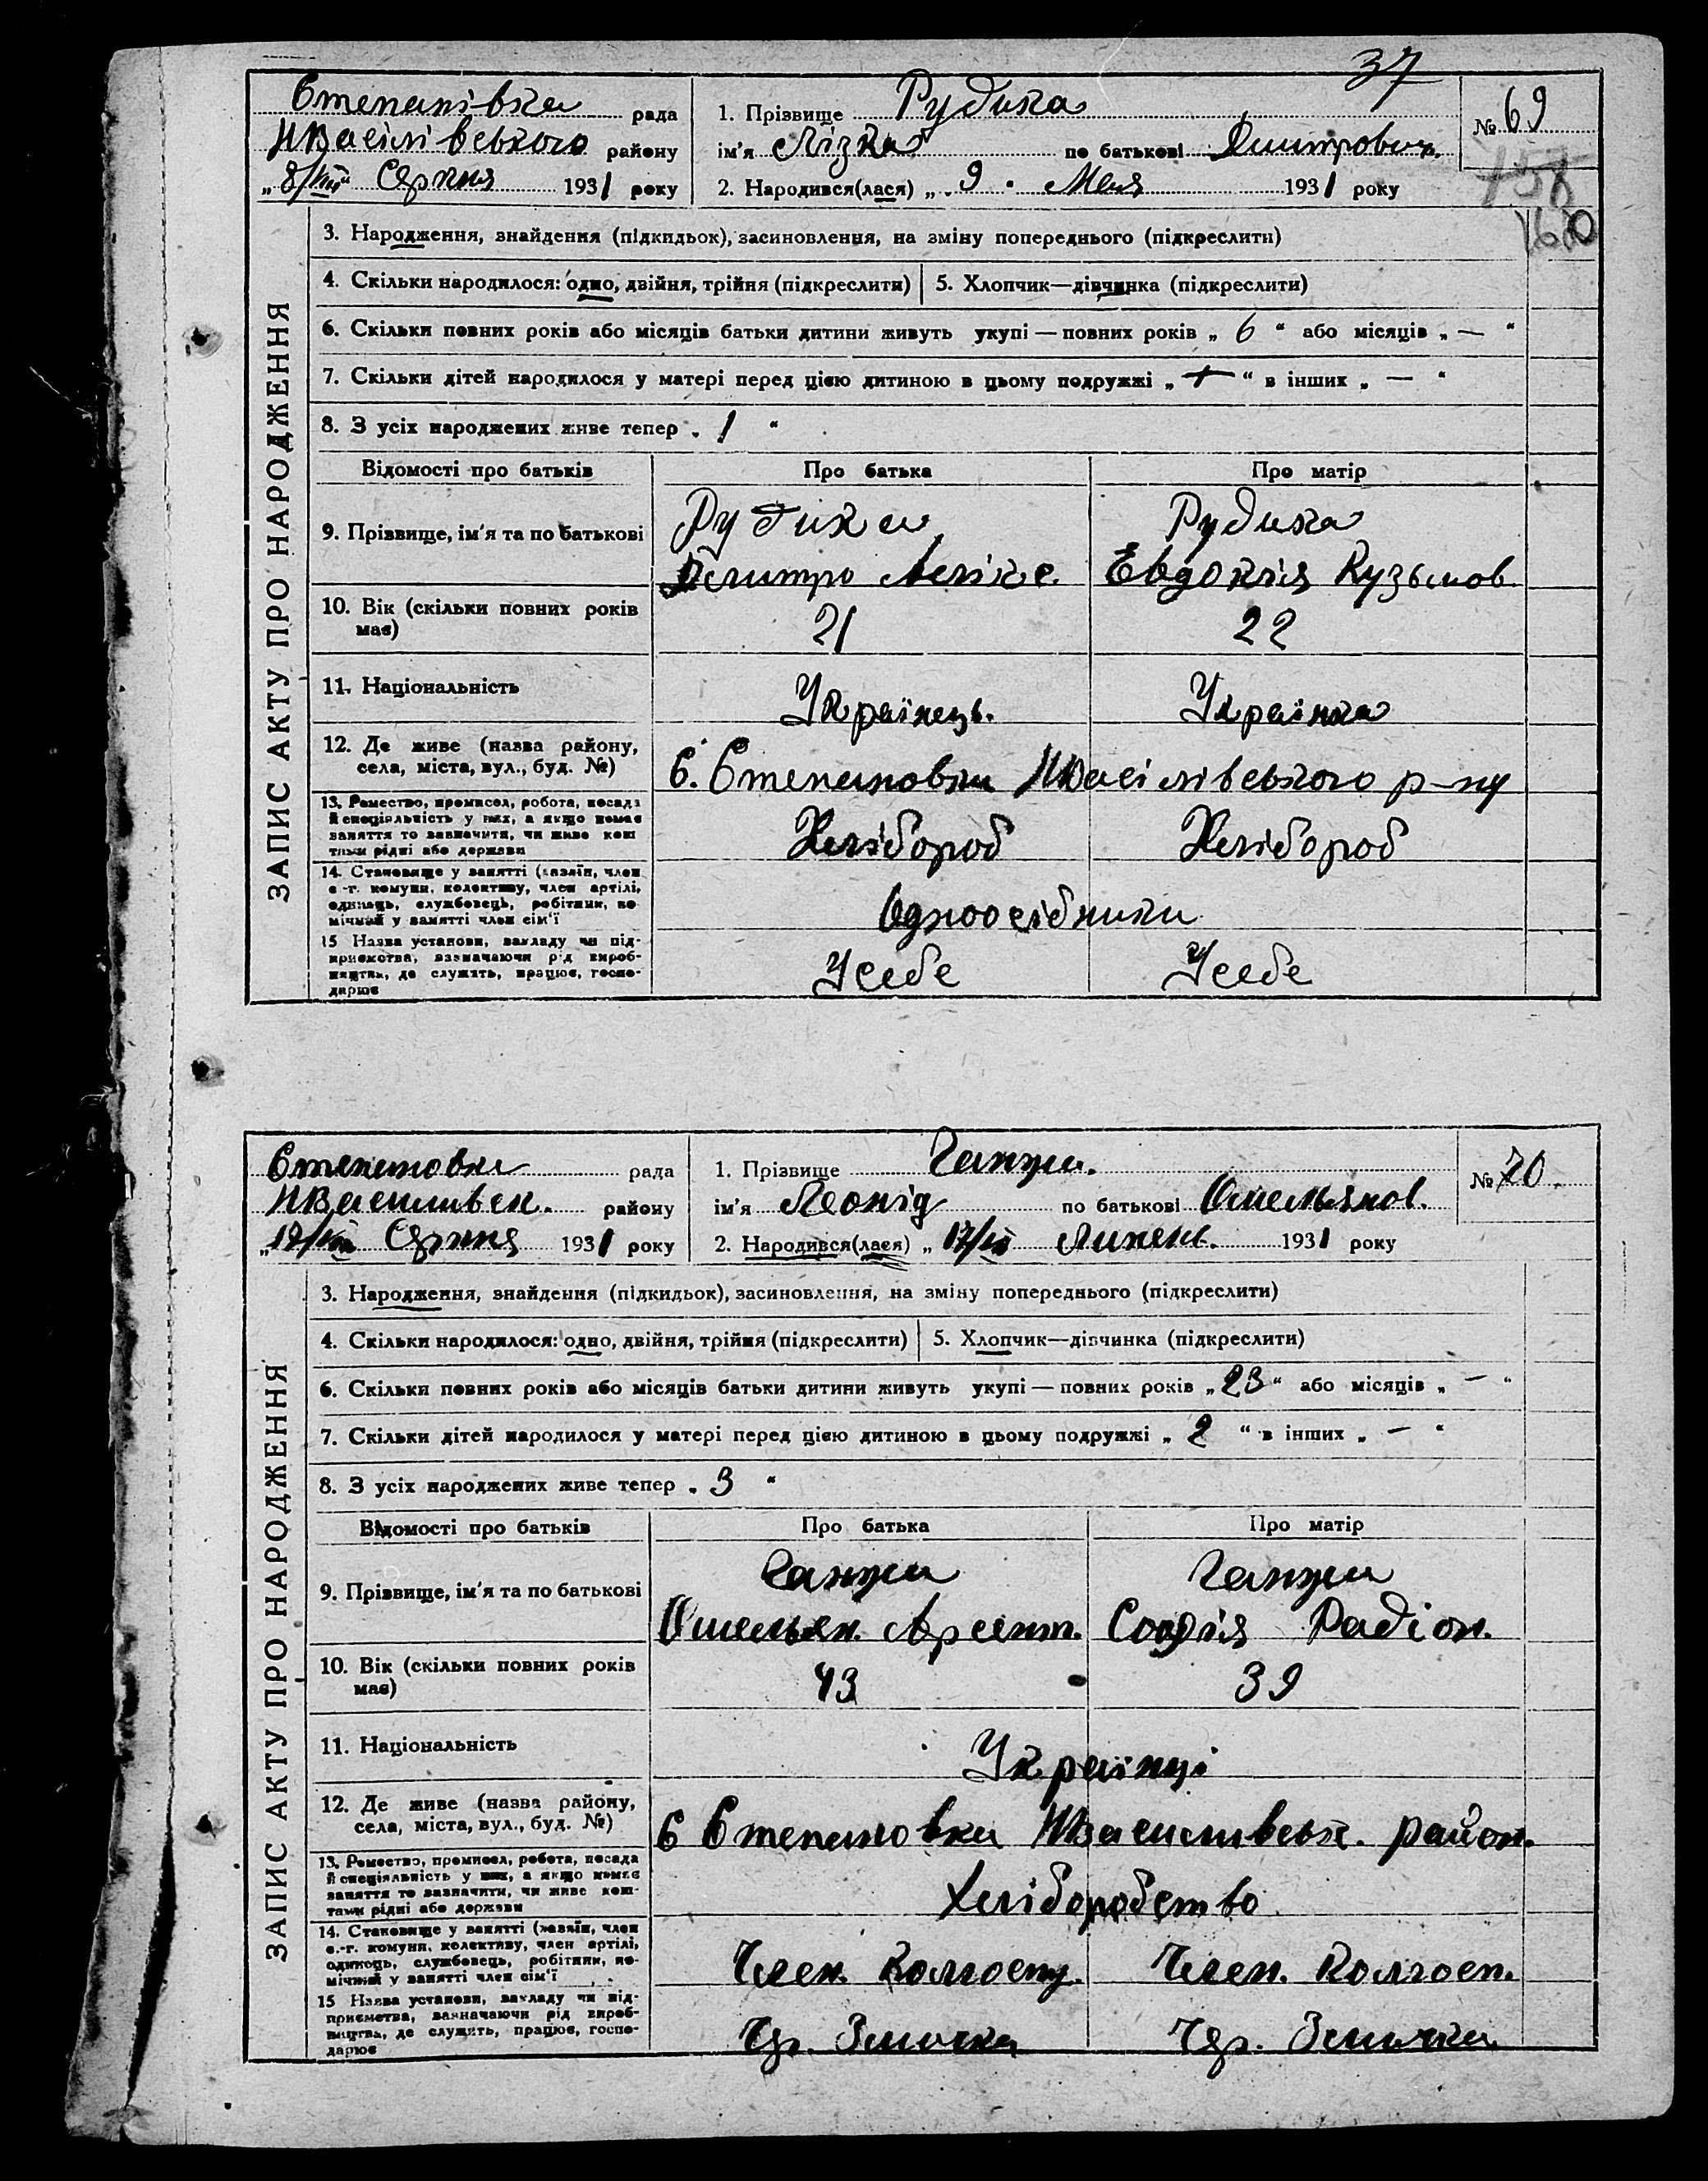 37
Степанівка рада
НВасілівського району
„8/VIII“ Серпня 1931 року
1. Прізвище Рудика
ім'я Лізка по батькові Дмитрович.
2. Народився(лася) „ 9 . Мая 1931 року
№ 69
158
160
ЗАПИС АКТУ ПРО НАРОДЖЕННЯ
3. Народження, знайдення (підкидьок), засиновлення, на зміну попереднього (підкреслити)
4. Скільки народилося: одно, двійня, трійня (підкреслити) 5. Хлопчик—дівчинка (підкреслити)
6. Скільки повних років або місяців батьки дитини живуть укупі — повних років „ 6 “ або місяців „ — “
7. Скільки дітей народилося у матері перед цією дитиною в цьому подружжі „ “ в інших „ — “
8. З усіх народжених живе тепер „ 1 “
Відомості про батьків Про батька Про матір
9. Прізвище, ім'я та по батькові
Рудика Рудика
Дмитро Алікс. Евдокія Кузьмов.
10. Вік (скільки повних років
має)
21 22
11. Національність
Українець. Українка
12. Де живе (назва району,
села, міста, вул., буд. №)
С. Степановка НВасілівського р-ну
13. Ремество, промисел, робота, посада
й спеціяльність у них, а якщо немає
заняття то зазначити, чи живе кош
тами рідні або держави
Хлібороб Хлібороб
14. Становище у занятті (хазяїн, член
с.-г. комуни, колективу, член артілі,
одинець, службовець, робітник, по-
мічний у занятті член сім'ї
Одноосібники
15 Назва установи, закладу чи під-
приємства, зазначаючи рід вироб-
ництва, де служить, працює, госпо-
дарює
У себе У себе
Степановка рада
НВасиливск. району
„12/VIII Серпня 1931 року
1. Прізвище Ганжа.
ім'я Леонід по батькові Омельянов.
2. Народився(лася) „ 17/VII Липень. 1931 року
№ 70.
ЗАПИС АКТУ ПРО НАРОДЖЕННЯ
3. Народження, знайдення (підкидьок), засиновлення, на зміну попереднього (підкреслити)
4. Скільки народилося: одно, двійня, трійня (підкреслити) 5. Хлопчик—дівчинка (підкреслити)
6. Скільки повних років або місяців батьки дитини живуть укупі — повних років „ 23 “ або місяців „ — “
7. Скільки дітей народилося у матері перед цією дитиною в цьому подружжі „ 2 “ в інших „ — “
8. З усіх народжених живе тепер „ 3 “
Відомості про батьків Про батька Про матір
9. Прізвище, ім'я та по батькові
Ганжа Ганжа
Омельян. Арсент. Софія Радіон.
10. Вік (скільки повних років
має)
43 39
11. Національність
Українці
12. Де живе (назва району,
села, міста, вул., буд. №)
С Степановка НВасиливськ. район.
13. Ремество, промисел, робота, посада
й спеціяльність у них, а якщо немає
заняття то зазначити, чи живе кош-
тами рідні або держави
Хліборобство
14. Становище у занятті (хазяїн, член
с.-г. комуни, колективу, член артілі,
одинець, службовець, робітник, по-
мічний у занятті член сім'ї
Член. Колгоспу. Член. Колгосп.
15 Назва установи, закладу чи під-
приємства, зазначаючи рід вироб-
ництва, де служить, працює, госпо-
дарює
Чер. Змичка Чер. Змичка